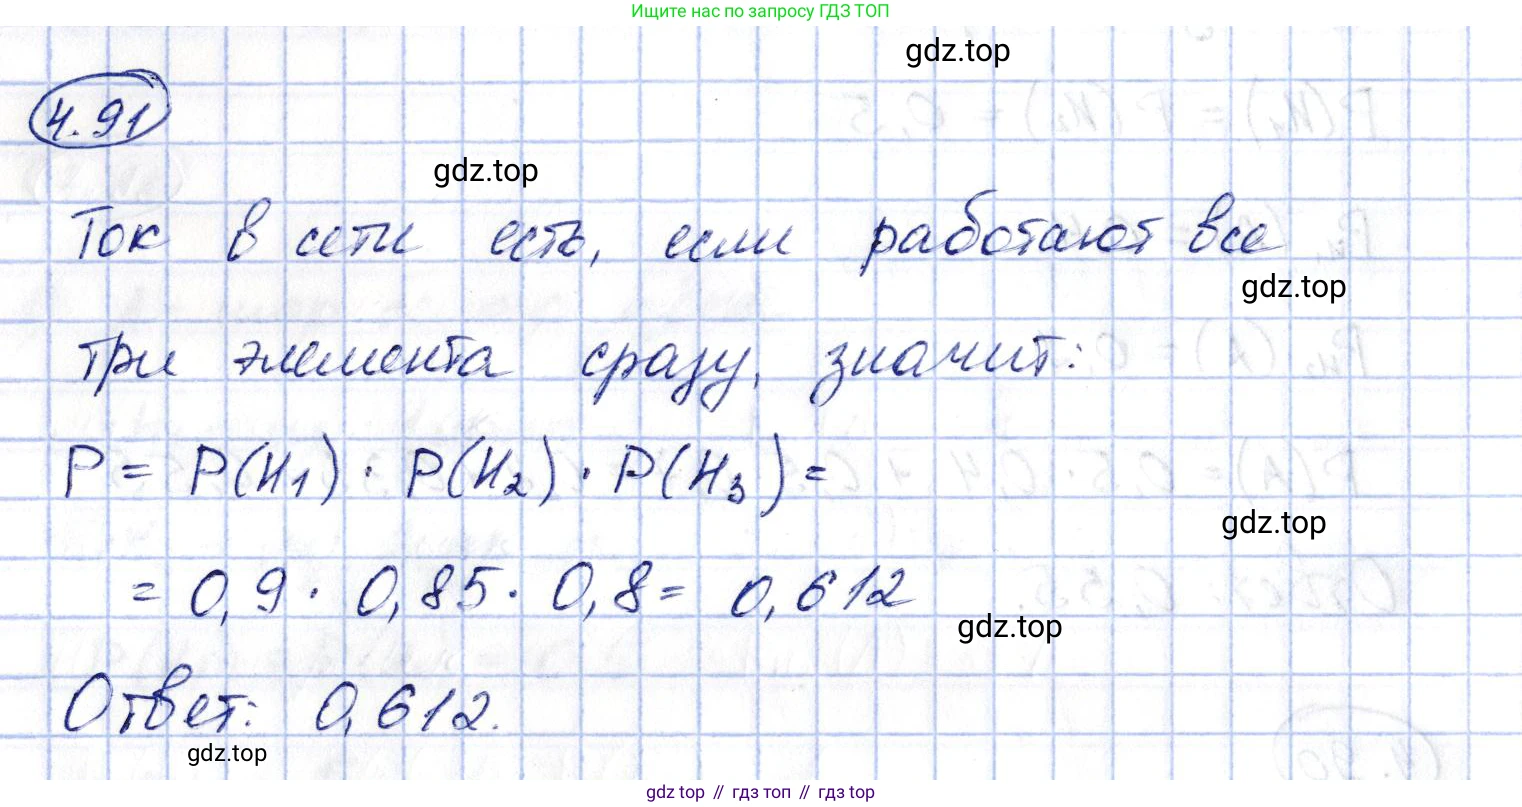 Ищите нас по запросу ГДЗ ТОП
gdz.top
4.91
gdz.top
Ток в сети есть, если работают все
gdz.top
три элемента сразу, значит:
P = P(H1) · P(H2) · P(H3) =
gdz.top
= 0,9 · 0,85 · 0,8 = 0,612
gdz.top
Ответ: 0,612.
gdz.top
gdz top // гдз топ // gdz top